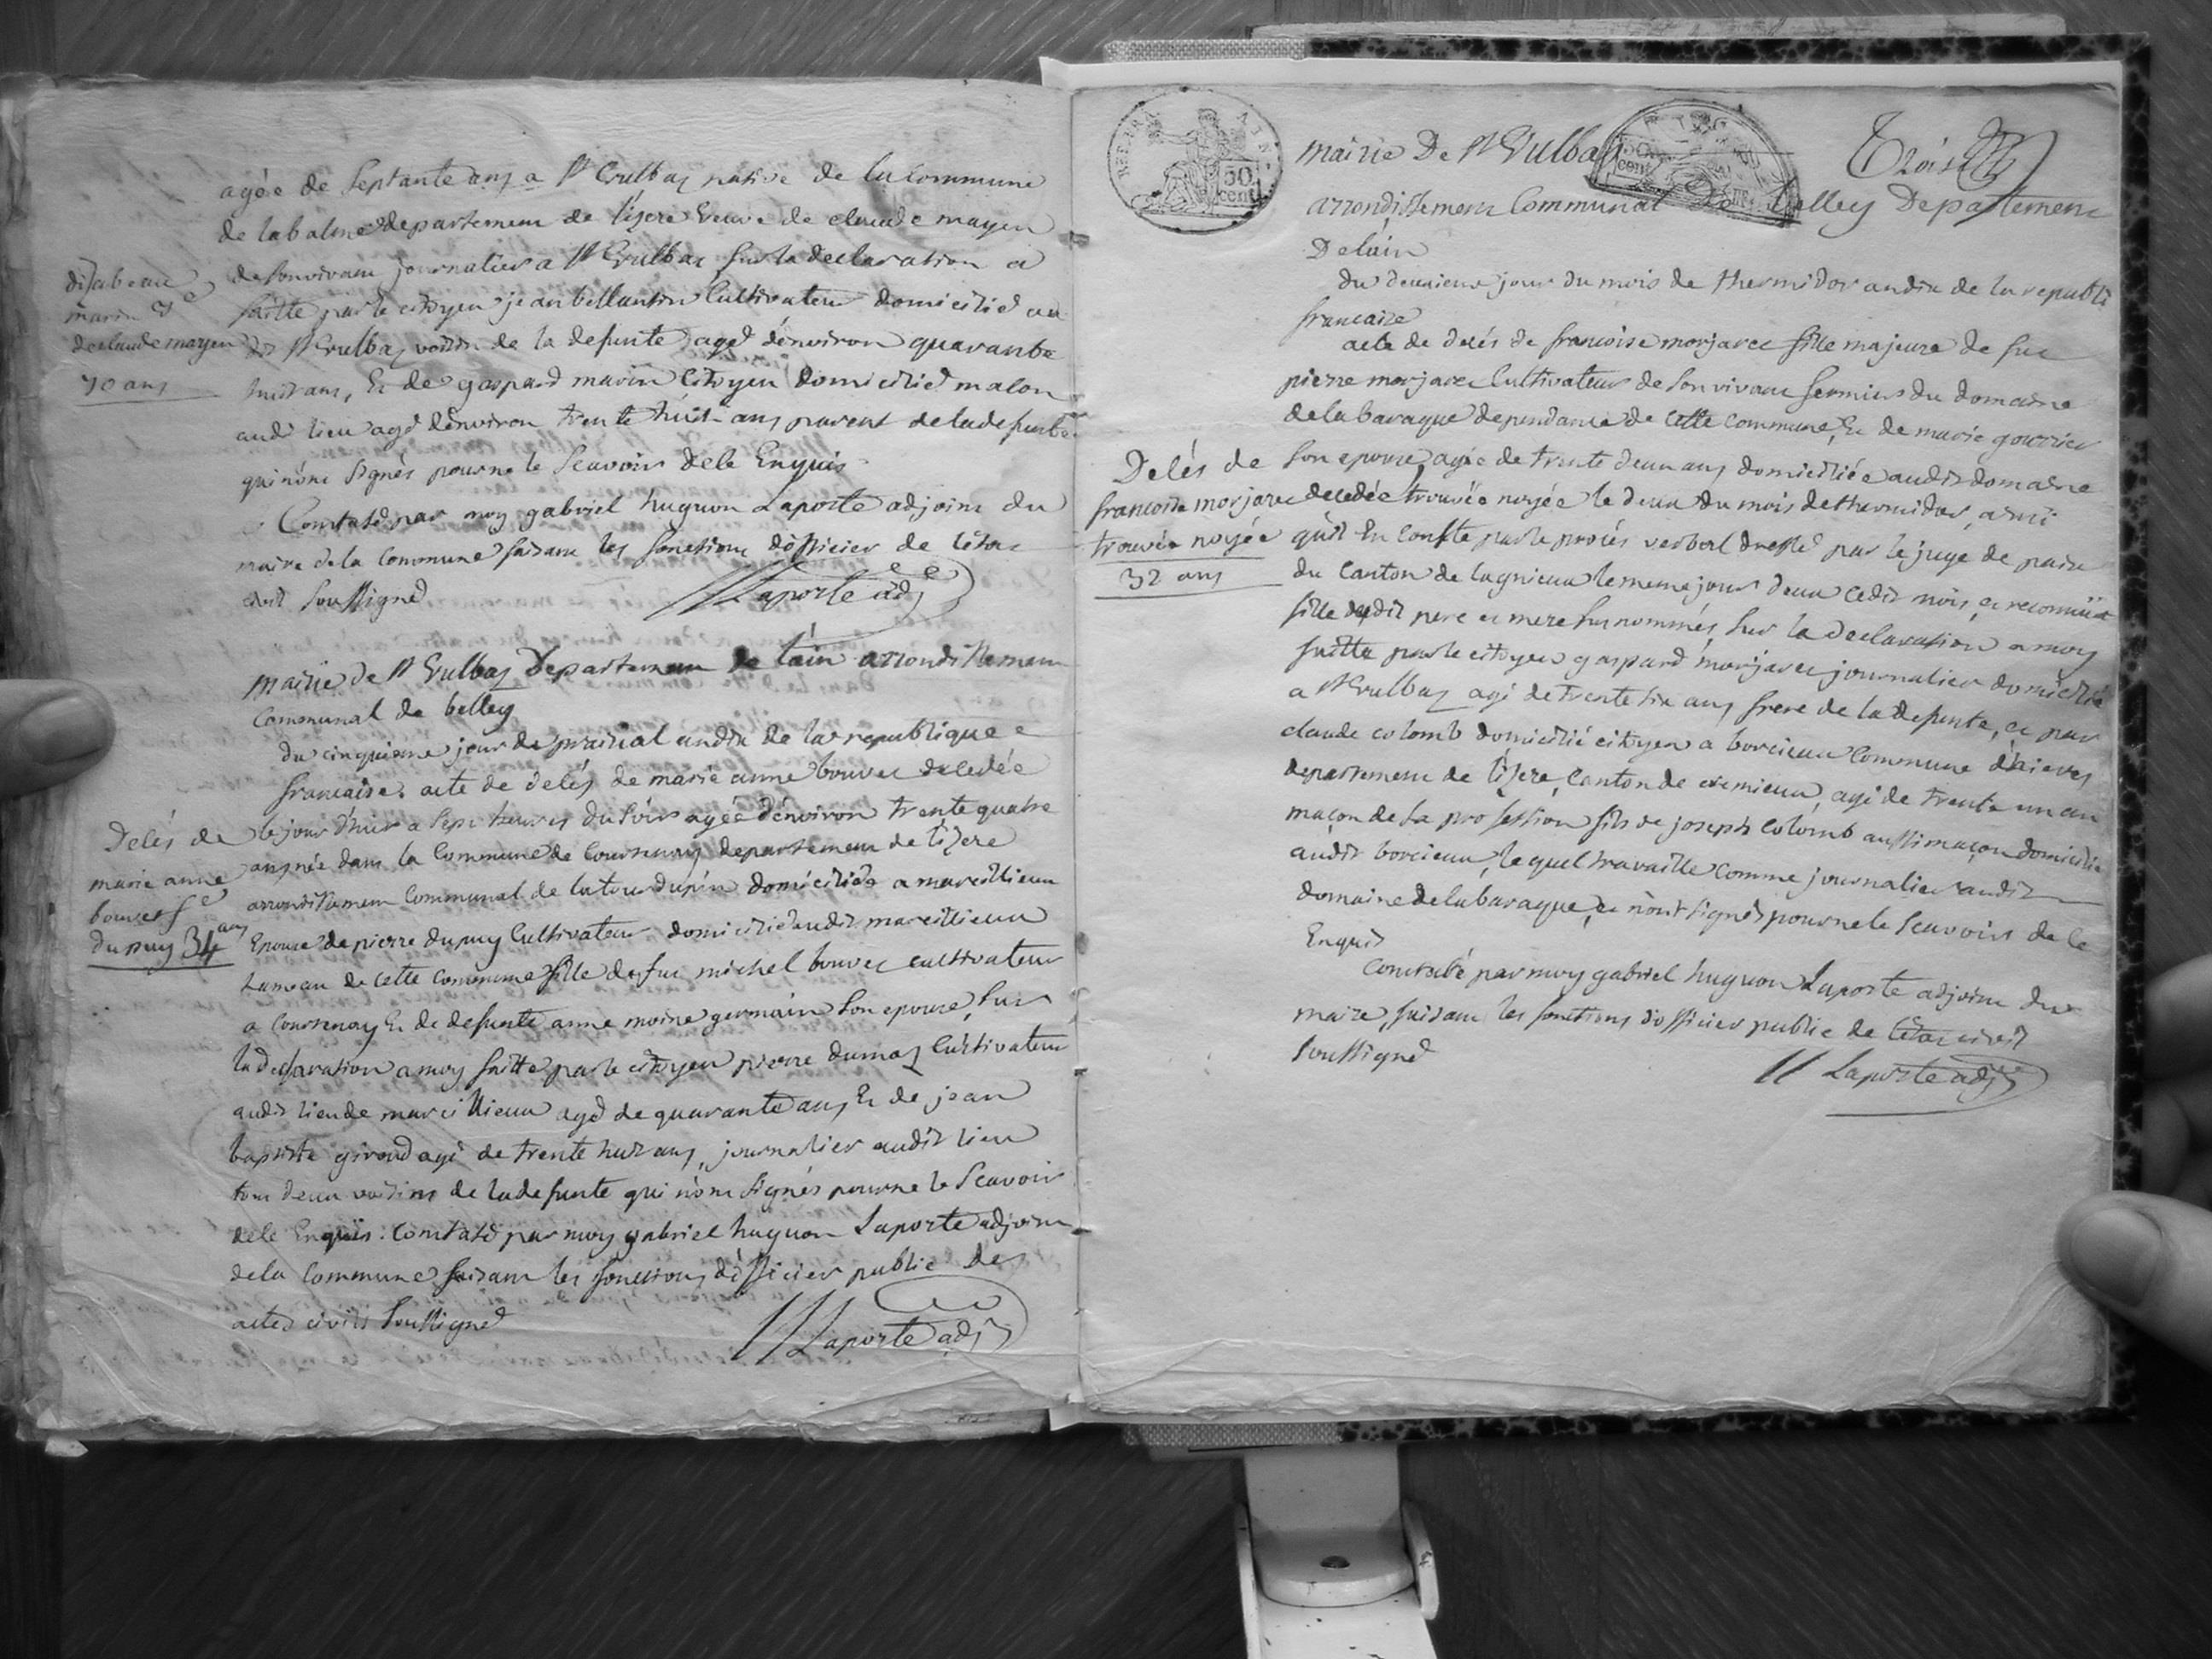 agée de septante ans a St Vulbas native de la Commune
de la balme departement de l'isere veuve de claude mayen
de son vivant journalier a St Vulbas sur la declaration a
faitte par le citoyen jean bellantin Cultivateur domicilié au
dit St Vulbas voisin de la defunte agé d'environ quarante
huit ans, Et de gaspard marin Citoyen domicilié malon
audit lieu agé d'environ trente huit ans parent de la defunte
qui n'ont signés pour ne le scavoir de le Enquis
Constaté par moy gabriel huguon Laporte adjoint du
maire de la Commune faisant les fonctions d'officier de l'état
civil soussigné
Laporte adj
disabeau
marin Ve
de claude mayen
70 ans
mairie de St Vulbas Departement de l'ain arrondissement
Communal de belley
du cinquieme jour de prairial an dix de la republique
francaise. acte de decés de marie anne bouvet decedée
le jour d'hier a sept heures du soir agée d'environ trente quatre
ans née dans la Commune de Courtenay departement de l'isere
arrondissement Communal de la tour dupin domiciliée a marcillieux
Epouse de pierre dupuy Cultivateur domicilié audit marcillieux
hameau de cette Commune fille de fut michel bouvet cultivateur
a Courtenay Et de defunte anne moine germain son epouse, sur
la declaration a moy faitte par le citoyen pierre dumas Cultivateur
audit lieu de marcillieux agé de quarante ans Et de jean
baptiste giroud agé de trente huit ans, journalier audit lieu
tous deux voisins de la defunte qui n'ont signés pour ne le Scavoir
de le Enquis. Constaté par moy gabriel huguon Laporte adjoint
de la Commune faisant les fonctions d'officier public des
actes civils soussigné
Laporte adj
Decés de
marie anne
bouvet fe
dupuy 34 ans
REP. FRA
50
cent
mairie De St Vulbas
arrondissement Communal de belley Departement
De l'ain
du deuxieme jour du mois de thermidor an dix de la republi
francaise
acte de decés de francoise morjaret fille majeure de fut
pierre morjaret Cultivateur de son vivant fermier du domaine
de la baraque dependance de cette commune, Et de marie gourrier
son epouse, agée de trente deux ans domiciliée audit domaine
decedée trouvée noyée le deux du mois de thermidor, ainsi
qu'il En conste par le procés verbal dressé par le juge de paix
du Canton de lagnieux le meme jour deux cedit mois, et reconnüe
fille dudit pere et mere sus nommés, sur la declaration a moy
faitte par le citoyen gaspard morjaret journalier domicilié
a St Vulbas agé de trente six ans frere de la defunte, et par
claude colomb domicilié citoyen a borcieux Commune d'hieres
departement de l'isere, Canton de cremieux, agé de trente un an
maçon de sa profession fils de joseph Colomb aussi maçon domicilié
audit borcieux, le quel travaille comme journalier audit
domaine de la baraque, et n'ont signés pour ne le scavoir de le
Enquis
Constaté par moy gabriel huguon Laporte adjoint du
maire, faisant les fonctions d'officier public de l'état civil
soussigné
Laporte adj
Decés de
francoise morjaret
trouvée noyée
32 ans